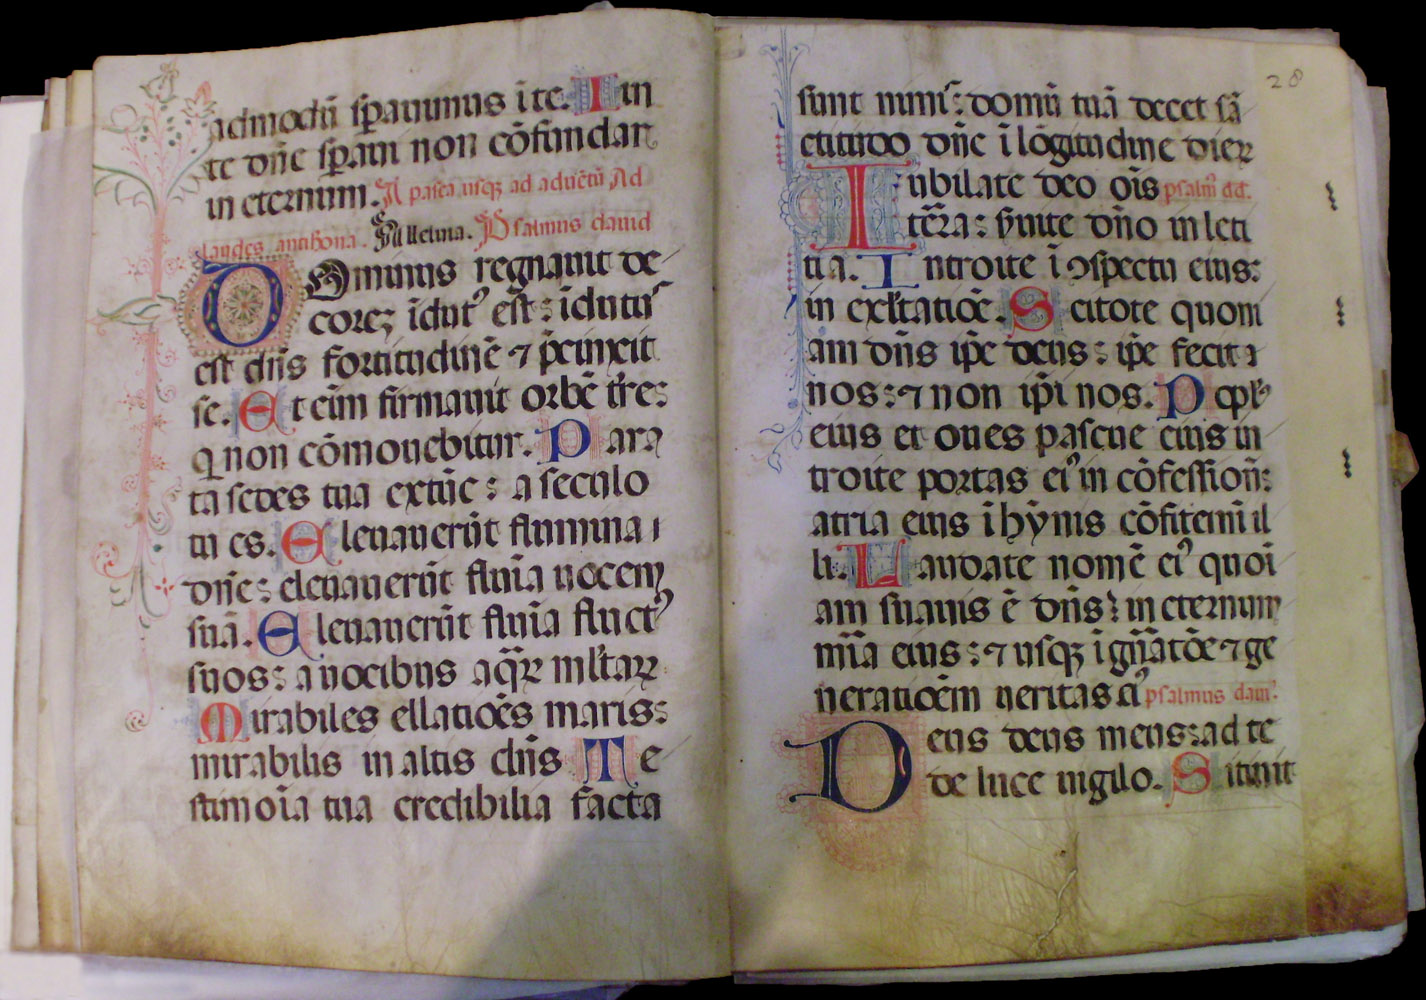 admodū sp̄auimus ī te. In
te dn̄e sp̄aui non cōfundar
in eternum. A pasca usq; ad aduētū. Ad
laudes antiphona. Alleluia. Psalmus dauid
Dominus regnauit de
corez īdut᾽ est: īdutus
est dn̄s fortitudinē ⁊ p̄cinxit
se. Et eīm firmauit orbē tr̄e:
q̄ non cōmouebitur. Para
ta sedes tua extūc: a seculo
tu es. Eleuauerūt flumina
dn̄e: eleuauerūt flūīa uocem
suā. Eleuauerūt fluīa fluct᾽
suos: a uocibus aq̄ꝝ ml̄taꝝ
Mirabiles ellatiōes maris:
mirabilis in altis dn̄s Te
stimoīa tua credibilia facta
28
sunt nimis: domū tuā decet sā
ctitudo dn̄e ī lōgitudine dieꝝ
Iubilate deo oīs psalm᾽ dd.
tēra: s̄uite dn̄o in leti
tia. Introite ī ɔspectu eius:
in exl̄tatiōe. Scitote quoni
am dn̄s ip̄e deus: ip̄e fecit
nos: ⁊ non ip̄i nos. Popl᾽
eius et oues pascue eius in
troite portas ei᾽ in cōfessiōn̄:
atria eius ī hȳnis cōfitemī il
li. Laudate nomē ei᾽ quoī
am suauis ē dn̄s: in eternum
mīa eius: ⁊ usq; ī gn̄atōe ⁊ ge
neratiōem ueritas ei᾽ psalmus daui᾽.
Deus deus meus: ad te
de luce uigilo. Sitiuit